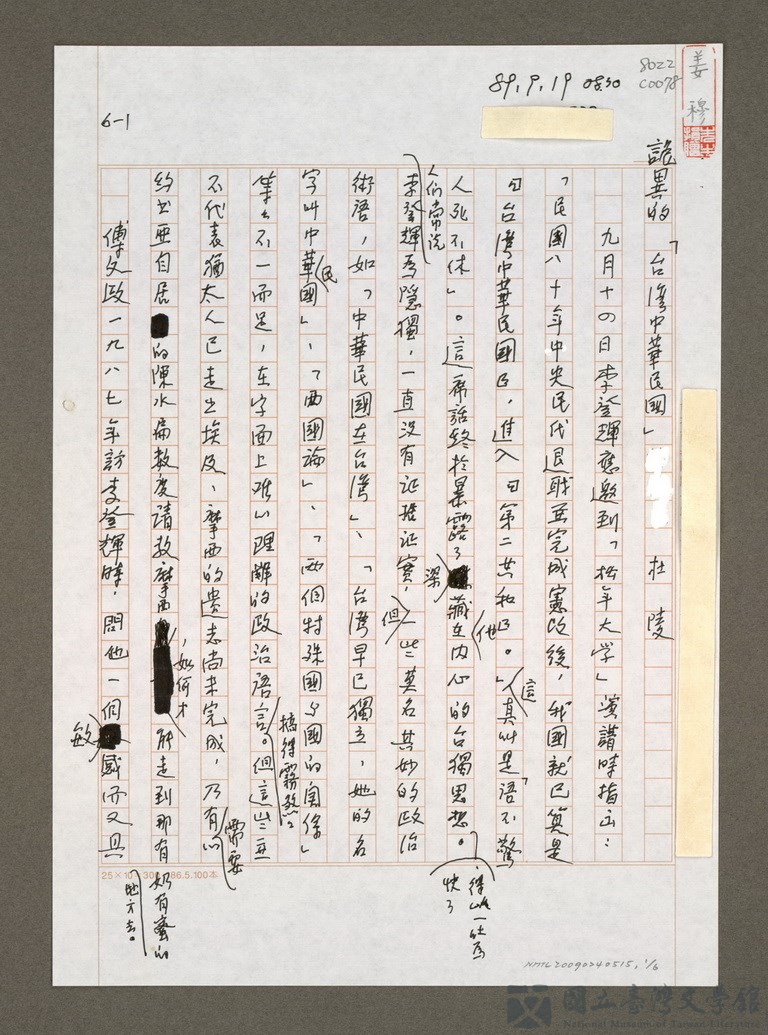 8022
C0078
姜穆
89.9.19 08:30
6-1
詭異的「台灣中華民國」 杜陵
九月十四日李登輝應邀到「松年大学」演講時指出：
「民國八十年中央民代退職並完成憲改後，我國就已算是
『台灣中華民國』，進入『第二共和』。」這真叫是「語不驚
人死不休」。這席話終於暴露了他深藏在內心的台獨思想。得以一吐為快了
人們常說李登輝為隱獨，一直沒有证据证實，但一些莫名其妙的政治
術語，如「中華民國在台灣」、「台灣早已獨立，她的名
字叫中華民國」、「兩國論」、「兩個特殊國与國的関係」
等等不一而足，在字面上难以理解的政治語言。搞得霧煞煞 但這些並
不代表猶太人已走出埃及，摩西的遺志尚未完成，乃有需要以
約书亚自居的陳水扁數度請教摩西，如何才能走到那有奶有蜜的地方去。
傅文政一九八七年訪李登輝時，問他一個敏感而又具
25×10=300 86.5.100本
NMTL20090240515, 1/6
國立臺灣文學館
National Museum of Taiwan Literature